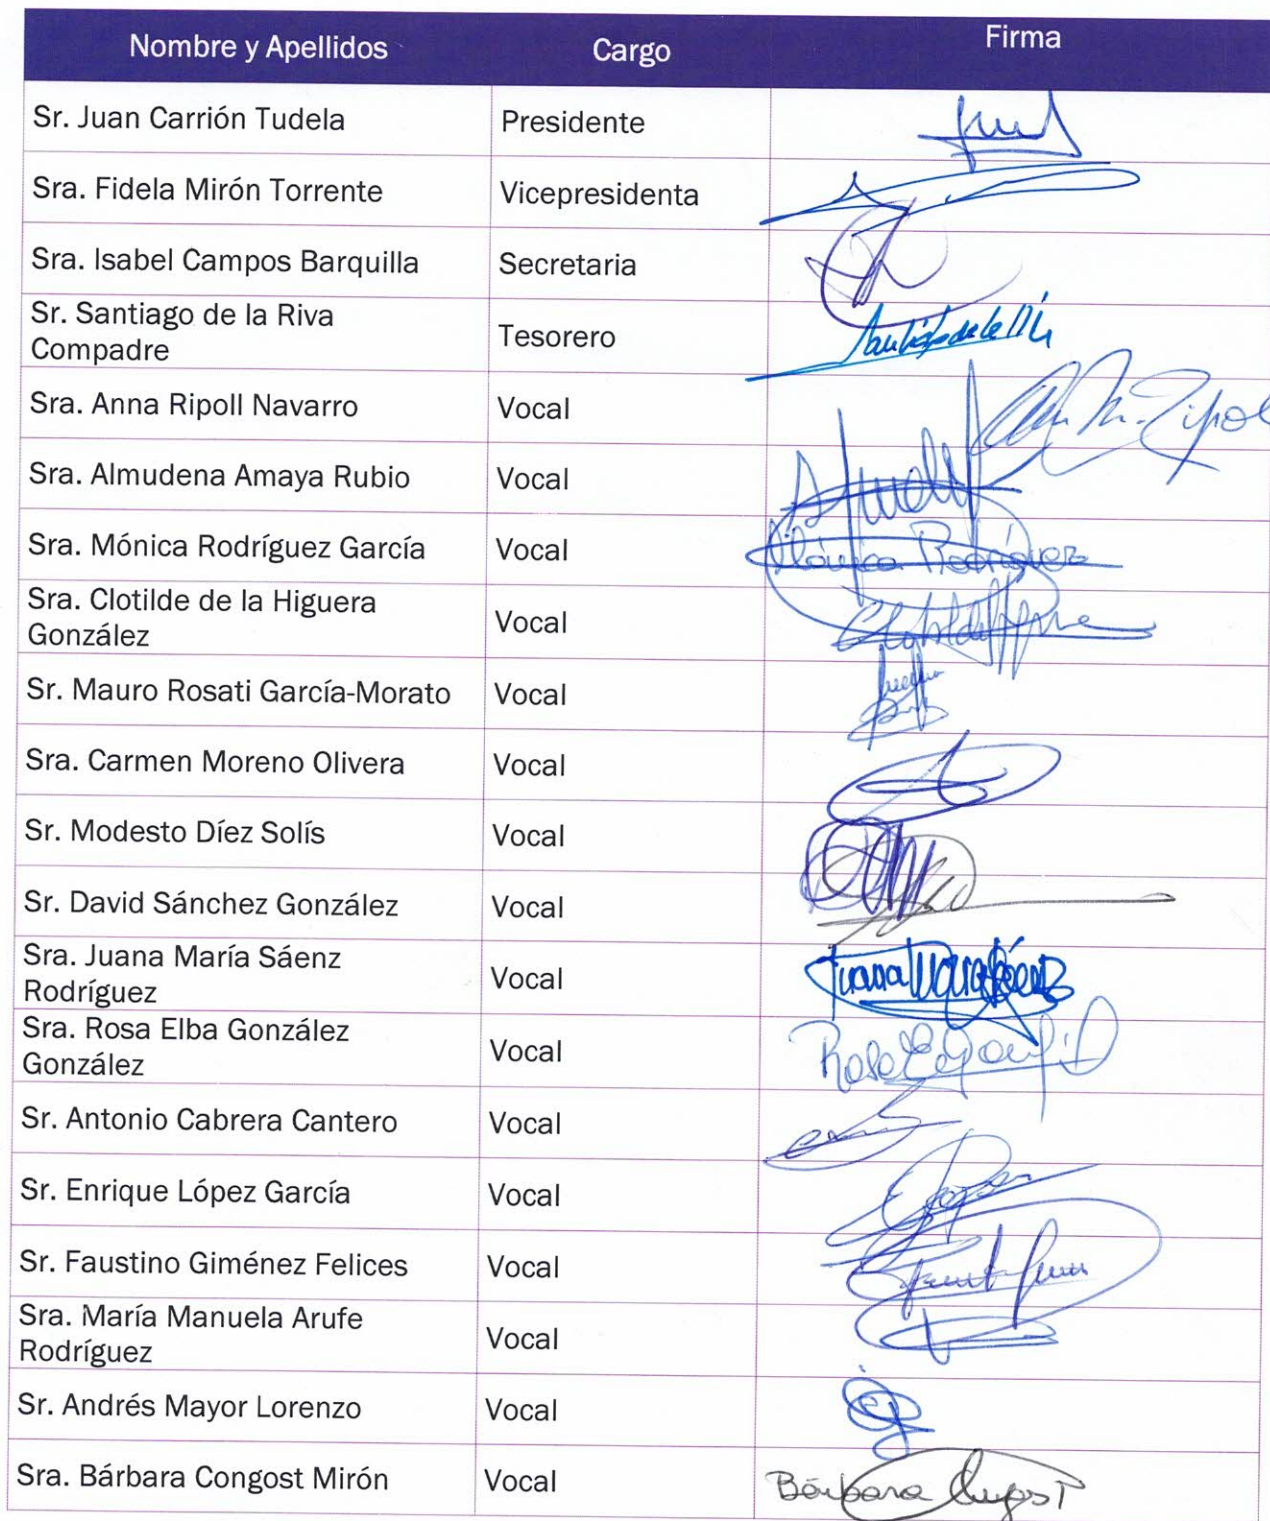 Nombre y Apellidos Cargo Firma
Sr. Juan Carrión Tudela Presidente
Sra. Fidela Mirón Torrente Vicepresidenta
Sra. Isabel Campos Barquilla Secretaria
Sr. Santiago de la Riva
Compadre Tesorero
Sra. Anna Ripoll Navarro Vocal
Sra. Almudena Amaya Rubio Vocal
Sra. Mónica Rodríguez García Vocal Mónica Rodríguez
Sra. Clotilde de la Higuera
González Vocal
Sr. Mauro Rosati García-Morato Vocal
Sra. Carmen Moreno Olivera Vocal
Sr. Modesto Díez Solís Vocal
Sr. David Sánchez González Vocal
Sra. Juana María Sáenz
Rodríguez Vocal Juana María Sáenz
Sra. Rosa Elba González
González Vocal
Sr. Antonio Cabrera Cantero Vocal
Sr. Enrique López García Vocal
Sr. Faustino Giménez Felices Vocal
Sra. María Manuela Arufe
Rodríguez Vocal
Sr. Andrés Mayor Lorenzo Vocal
Sra. Bárbara Congost Mirón Vocal Bárbara Congost